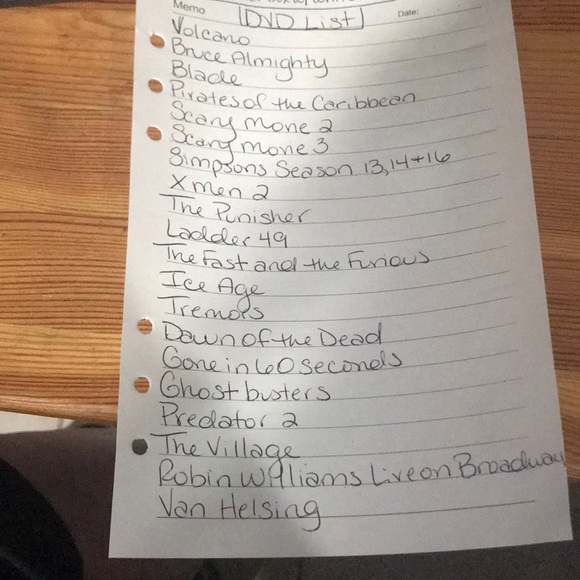 Memo
DVD List
Date:
Volcano
Bruce Almighty
Blade
Pirates of the Caribbean
Scary Movie 2
Scary Movie 3
Simpsons Season 13, 14 + 16
X men 2
The Punisher
Ladder 49
The Fast and the Furious
Ice Age
Tremors
Dawn of the Dead
Gone in 60 seconds
Ghost busters
Predator 2
The Village
Robin Williams Live on Broadway
Van Helsing